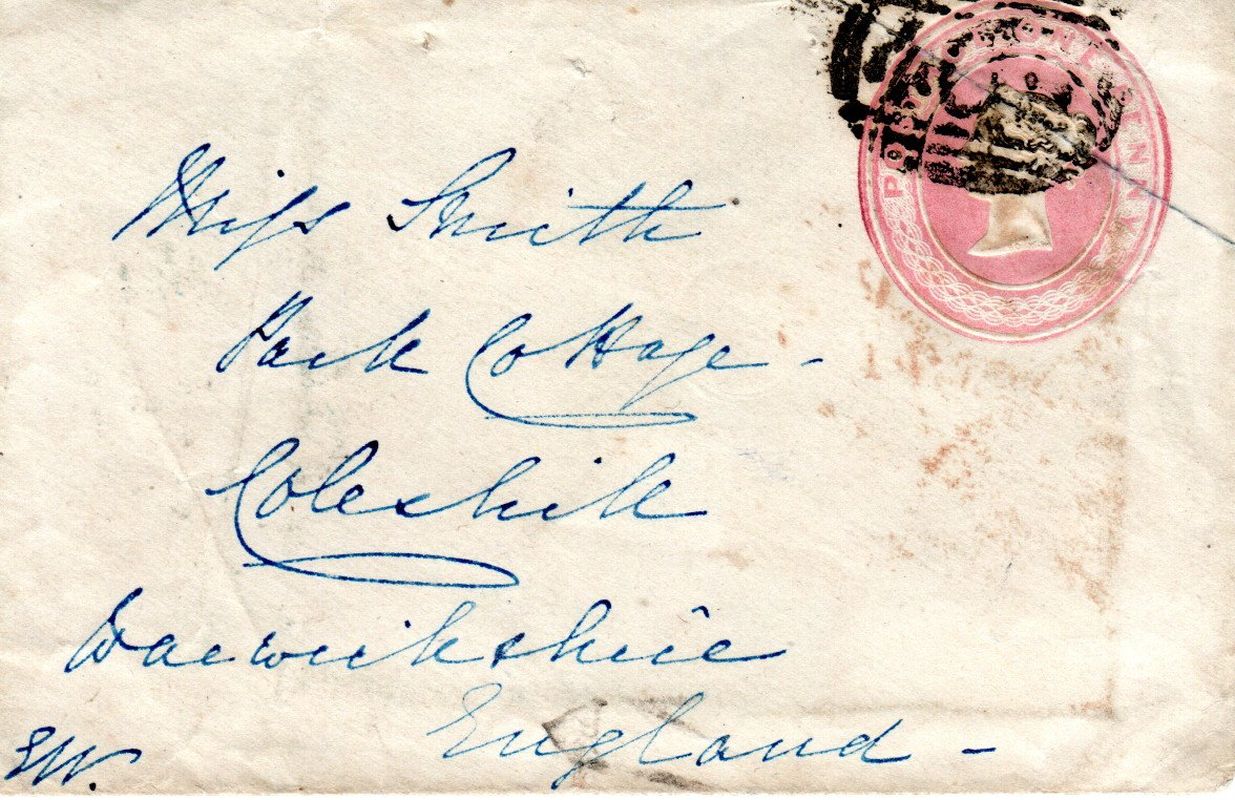 POSTAGE ONE PENNY
Miss Smith
Park Cottage -
Coleshill
Warwickshire
England -
EW.